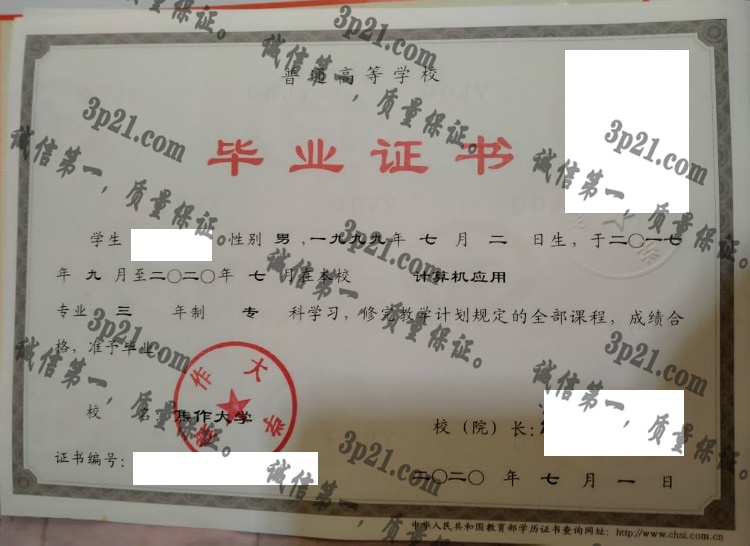 普通高等学校
毕业证书
学生 性别 男 ,一九九九年 七 月 二 日生，于二〇一七
年 九 月至二〇二〇年 七 月在本校 计算机应用
专业 三 年制 专 科学习，修完教学计划规定的全部课程，成绩合
格，准予毕业
校 名 焦作大学
校（院）长:
焦作大学
证书编号:
二〇二〇 年 七 月 一 日
中华人民共和国教育部学历证书查询网址: http://www.chsi.com.cn
3p21.com
诚信第一，质量保证。
3p21.com
诚信第一，质量保证。
3p21.com
诚信第一，质量保证。
3p21.com
诚信第一，质量保证。
3p21.com
诚信第一，质量保证。
3p21.com
诚信第一，质量保证。
3p21.com
诚信第一，质量保证。
3p21.com
诚信第一，质量保证。